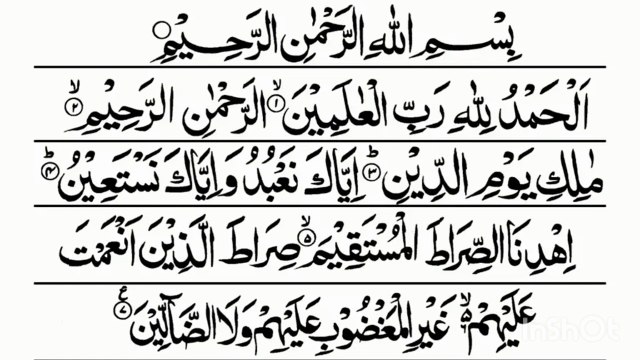 بِسْمِ اللهِ الرَّحْمٰنِ الرَّحِيْمِ
اَلْحَمْدُ لِلّٰهِ رَبِّ الْعٰلَمِيْنَ ۙ﴿۱﴾ الرَّحْمٰنِ الرَّحِيْمِ ۙ﴿۲﴾
مٰلِكِ يَوْمِ الدِّيْنِ ؕ﴿۳﴾ اِيَّاكَ نَعْبُدُ وَ اِيَّاكَ نَسْتَعِيْنُ ؕ﴿۴﴾
اِهْدِنَا الصِّرَاطَ الْمُسْتَقِيْمَ ۙ﴿۵﴾ صِرَاطَ الَّذِيْنَ اَنْعَمْتَ
عَلَيْهِمْ ۙ۬ۦ غَيْرِ الْمَغْضُوْبِ عَلَيْهِمْ وَلَا الضَّآلِّيْنَ ﴿۷﴾
InShOt